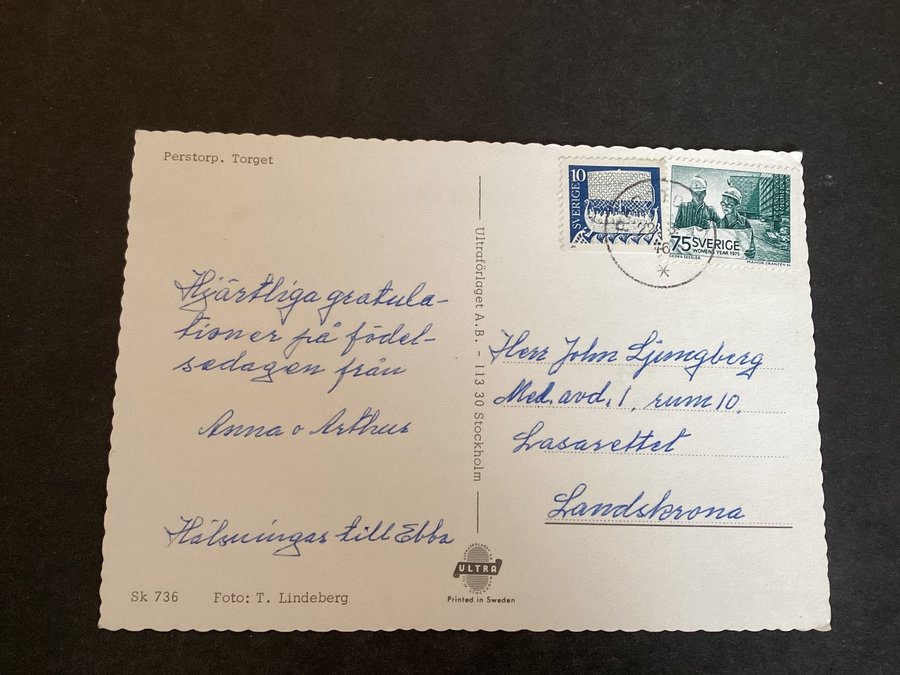 Perstorp. Torget
Hjärtliga gratula-
tioner på födel-
sedagen från
Anna o Arthur
Hälsningar till Ebba
Sk 736 Foto: T. Lindeberg
Ultraförlaget A.B. - 113 30 Stockholm
ULTRA
Printed in Sweden
SVERIGE 10
75 SVERIGE
WOMENS YEAR 1975
Herr John Ljungberg
Med. avd. 1, rum 10,
Lasarettet
Landskrona